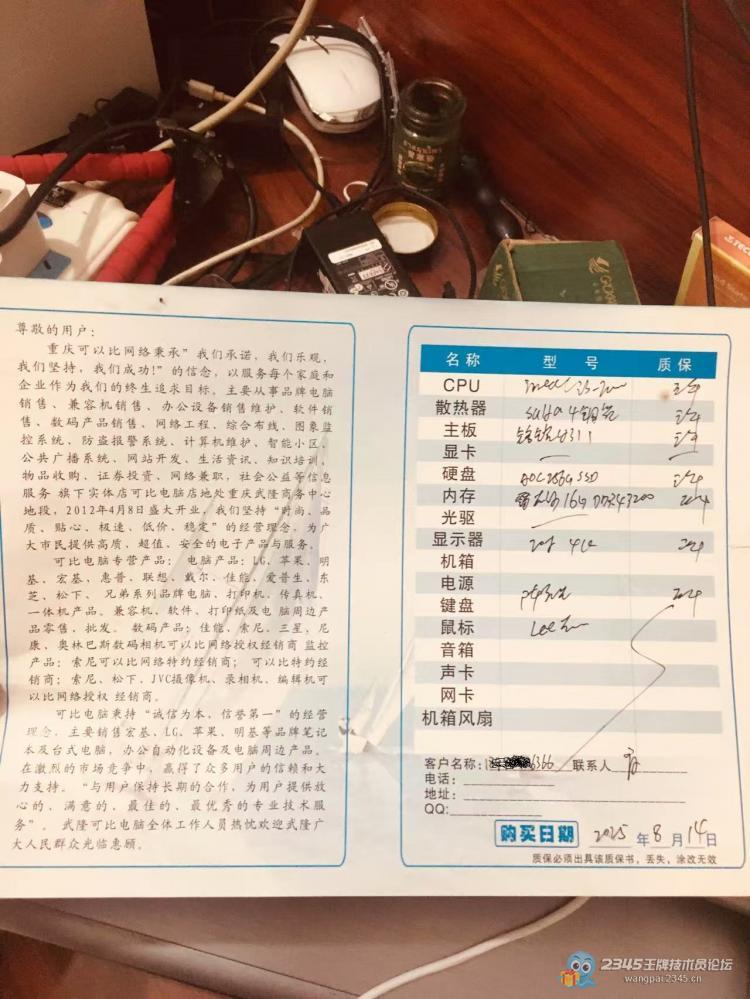 尊敬的用户：
重庆可以比网络秉承"我们承诺，我们乐观，
我们坚持，我们成功！"的信念，以服务每个家庭和
企业作为我们的终生追求目标，主要从事品牌电脑
销售、兼容机销售、办公设备销售维护、软件销
售、数码产品销售、网络工程、综合布线、图象监
控系统、防盗报警系统、计算机维护、智能小区、
公共广播系统、网站开发、生活资讯、知识培训、
物品收购、证券投资、网络兼职，社会公益等信息
服务 旗下实体店可比电脑店地处重庆武隆商务中心
地段，2012年4月8日盛大开业，我们坚持"时尚、品
质、贴心、极速、低价、稳定"的经营理念，为广
大市民提供高质、超值、安全的电子产品与服务。
可比电脑专营产品： 电脑产品：LG、苹果、明
基、宏基、惠普、联想、戴尔、佳能、爱普生、东
芝、松下、 兄弟系列品牌电脑、打印机、传真机、
一体机产品。兼容机、软件、打印纸及电脑周边产
品零售、批发。 数码产品：佳能、索尼、三星、尼
康、奥林巴斯数码相机可以比网络授权经销商 监控
产品：索尼可以比网络特约经销商； 可以比特约经
销商；索尼、松下、JVC摄像机、录相机、编辑机可
以比网络授权 经销商。
可比电脑秉持"诚信为本、信誉第一"的经营
理念，主要销售宏基、LG、苹果、明基等品牌笔记
本及台式电脑，办公自动化设备及电脑周边产品。
在激烈的市场竞争中，赢得了众多用户的信赖和大
力支持。"与用户保持长期的合作，为用户提供放
心的、满意的、最佳的、最优秀的专业技术服
务"。 武隆可比电脑全体工作人员热忱欢迎武隆广
大人民群众光临惠顾。
名称 型号 质保
CPU
散热器
主板
显卡
硬盘 256G SSD
内存 16G DDR4 3200
光驱
显示器
机箱
电源
键盘
鼠标
音箱
声卡
网卡
机箱风扇
客户名称： 6366 联系人
电话：
地址：
QQ:
购买日期 2025 年 8 月 14 日
质保必须出具该质保书，丢失，涂改无效
2345王牌技术员论坛
wangpai.2345.cn